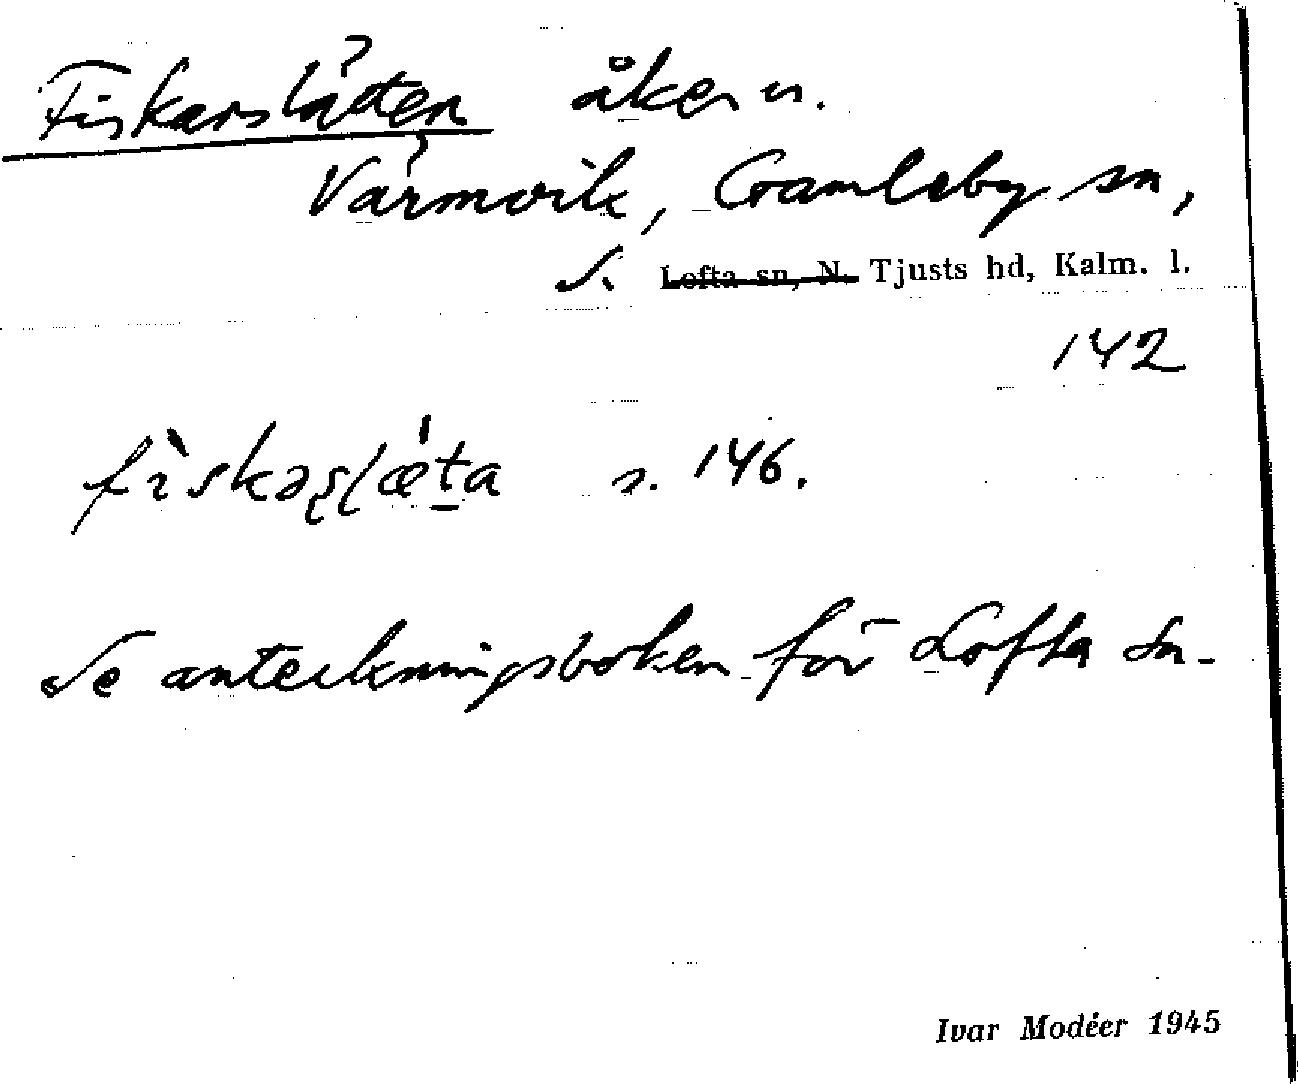 Fiskarslätten åker n.
Värmvik, Gamleby sn,
S. Lofta sn, N. Tjusts hd, Kalm. l.
142
s. 146.
Se anteckningsboken för Lofta sn.
Ivar Modéer 1945